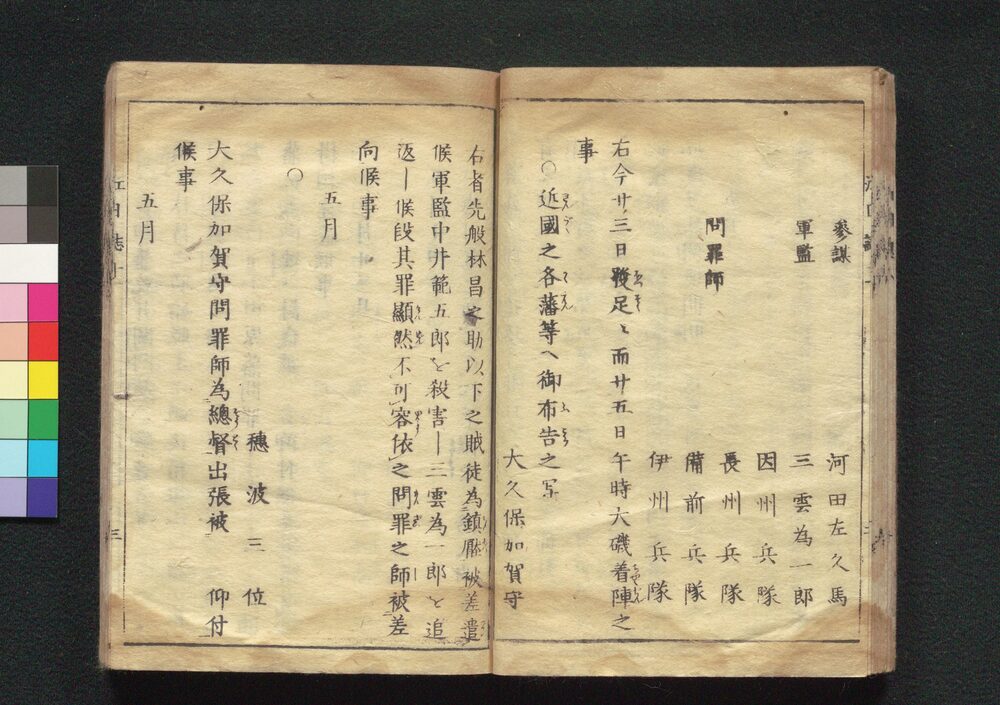 參謀　河田左久馬
軍監　三雲為一郎
問罪師　因州兵隊
長州兵隊
備前兵隊
伊州兵隊
右今廿三日發足〻而廿五日午時大磯着陣之
事
○近國之各藩等へ御布告之写
大久保加賀守
右者先般林昌之助以下之賊徒為鎮壓被差遣
候軍監中井範五郎を殺害し三雲為一郎を追
返し候段其罪顯然不可容依之問罪之師被差
向候事
五月
○
穗波三位
大久保加賀守問罪師為總督出張被　仰付
候事
五月
三